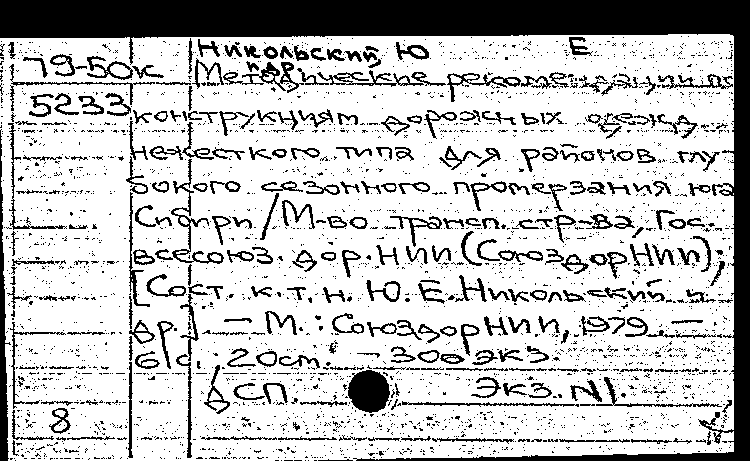 Никольский Ю Е
и др.
79-50к Методические рекомендации по
5233 конструкциям дорожных одежд
нежесткого типа для районов глу
бокого сезонного промерзания юга
Сибири / М-во трансп. стр-ва, Гос.
всесоюз. дор. НИИ (СоюздорНИИ);
[Сост. к. т. н. Ю. Е. Никольский и
др.]. – М. : СоюздорНИИ, 1979. –
б/с. ; 20см. – 300экз.
ДСП. Экз. N1.
8